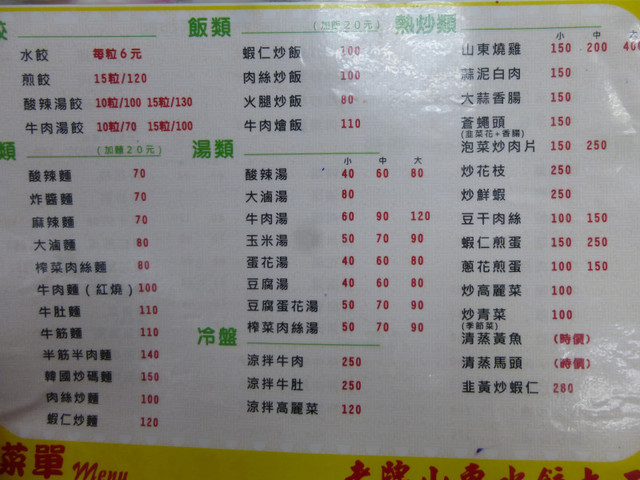 餃
水餃 每粒6元
煎餃 15粒/120
酸辣湯餃 10粒/100 15粒/130
牛肉湯餃 10粒/70 15粒/100
類 (加麵20元)
酸辣麵 70
炸醬麵 70
麻辣麵 70
大滷麵 80
榨菜肉絲麵 80
牛肉麵(紅燒) 100
牛肚麵 110
牛筋麵 110
半筋半肉麵 140
韓國炒碼麵 150
肉絲炒麵 100
蝦仁炒麵 120
飯類 (加麵20元)
蝦仁炒飯 100
肉絲炒飯 100
火腿炒飯 80
牛肉燴飯 110
湯類
小 中 大
酸辣湯 40 60 80
大滷湯 80
牛肉湯 60 90 120
玉米湯 50 70 90
蛋花湯 40 60 80
豆腐湯 40 60 80
豆腐蛋花湯 50 70 90
榨菜肉絲湯 50 70 90
冷盤
涼拌牛肉 250
涼拌牛肚 250
涼拌高麗菜 120
熱炒類
小 中 大
山東燒雞 150 200 400
蒜泥白肉 150
大蒜香腸 150
蒼蠅頭 150
(韭菜花+香腸)
泡菜炒肉片 150 250
炒花枝 250
炒鮮蝦 250
豆干肉絲 100 150
蝦仁煎蛋 150 250
蔥花煎蛋 100 150
炒高麗菜 100
炒青菜 100
(季節菜)
清蒸黃魚 (時價)
清蒸馬頭 (時價)
韭黃炒蝦仁 280
菜單 Menu
老牌山東水餃大王